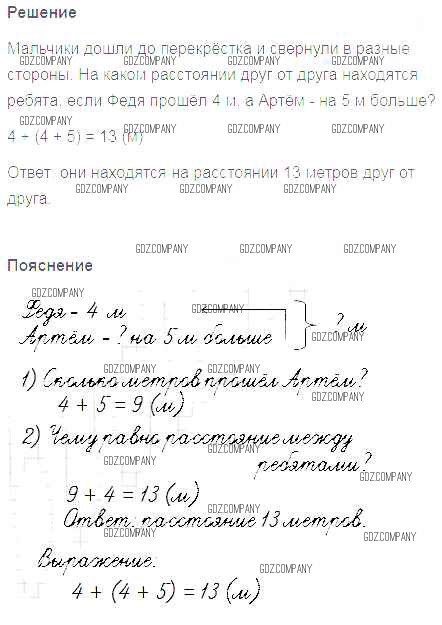 Решение
Мальчики дошли до перекрёстка и свернули в разные
GDZCOMPANY GDZCOMPANY GDZCOMPANY GDZCOMPANY
стороны. На каком расстоянии друг от друга находятся
GDZCOMPANY GDZCOMPANY GDZCOMPANY GDZCOMPANY
ребята, если Федя прошёл 4 м, а Артём - на 5 м больше?
GDZCOMPANY GDZCOMPANY GDZCOMPANY GDZCOMPANY
4 + (4 + 5) = 13 (м)
Ответ: они находятся на расстоянии 13 метров друг от
GDZCOMPANY GDZCOMPANY GDZCOMPANY
друга.
GDZCOMPANY GDZCOMPANY GDZCOMPANY
Пояснение
GDZCOMPANY
Федя - 4 м GDZCOMPANY
Артём - ? на 5 м больше ? м
GDZCOMPANY
1) Сколько метров прошёл Артём?
GDZCOMPANY GDZCOMPANY
4 + 5 = 9 (м) GDZCOMPANY
2) Чему равно расстояние между
GDZCOMPANY
ребятами?
GDZCOMPANY GDZCOMPANY
GDZCOMPANY
9 + 4 = 13 (м)
GDZCOMPANY
Ответ: расстояние 13 метров.
GDZCOMPANY GDZCOMPANY
Выражение:
GDZCOMPANY
4 + (4 + 5) = 13 (м)
GDZCOMPANY